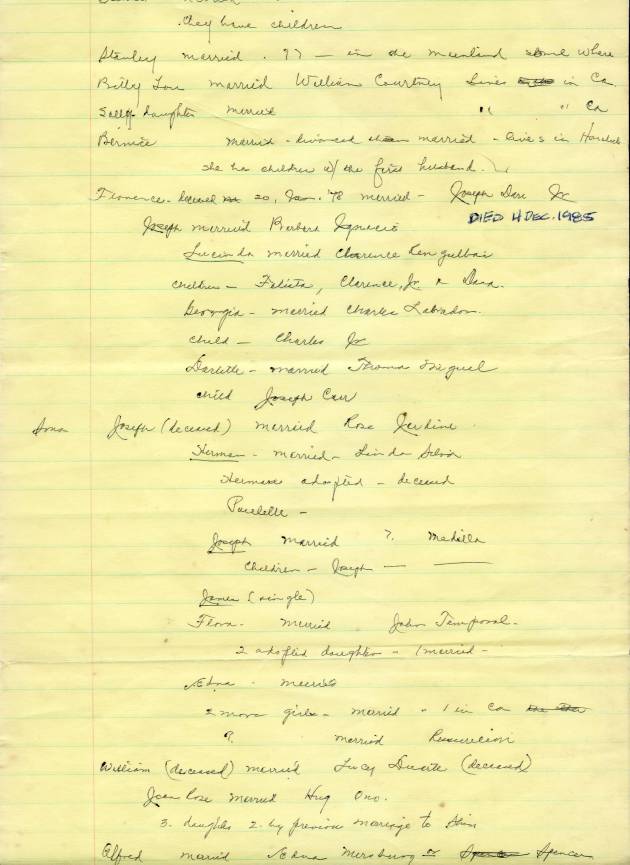 they have children
Stanley married . ?? — in the mainland some where
Betty Lou married William Courtney lives in Ca
Sally daughter married " " Ca
Bernice married - divorced married - lives in
She has children w/ the first husband.
Florence - deceased 20, Jan. '78 married - Joseph Jr
DIED 4 DEC. 1985
Joseph married Barbara Ignacio
Lucinda married Clarence
children - Felista, Clarence, Jr. & Dana.
Georgia - married Charles Labrador.
child - Charles Jr
Darlette - married Thomas
child Joseph
Joseph (deceased) married Rose Jardine
Herman - married - Linda Silva
Hermans adopted - deceased
Paulette -
Joseph married ?. Madilla
Children - Joseph — —
James (single)
Flora - married John Temporal -
2 adopted daughters - 1 married -
Edna - married
2 more girls - married - 1 in Ca
?. married
William (deceased) married Lucy Duarte (deceased)
Joan Rose married Ono.
3. daughters 2. by previous marriage to
Alfred married Edna or Spencer